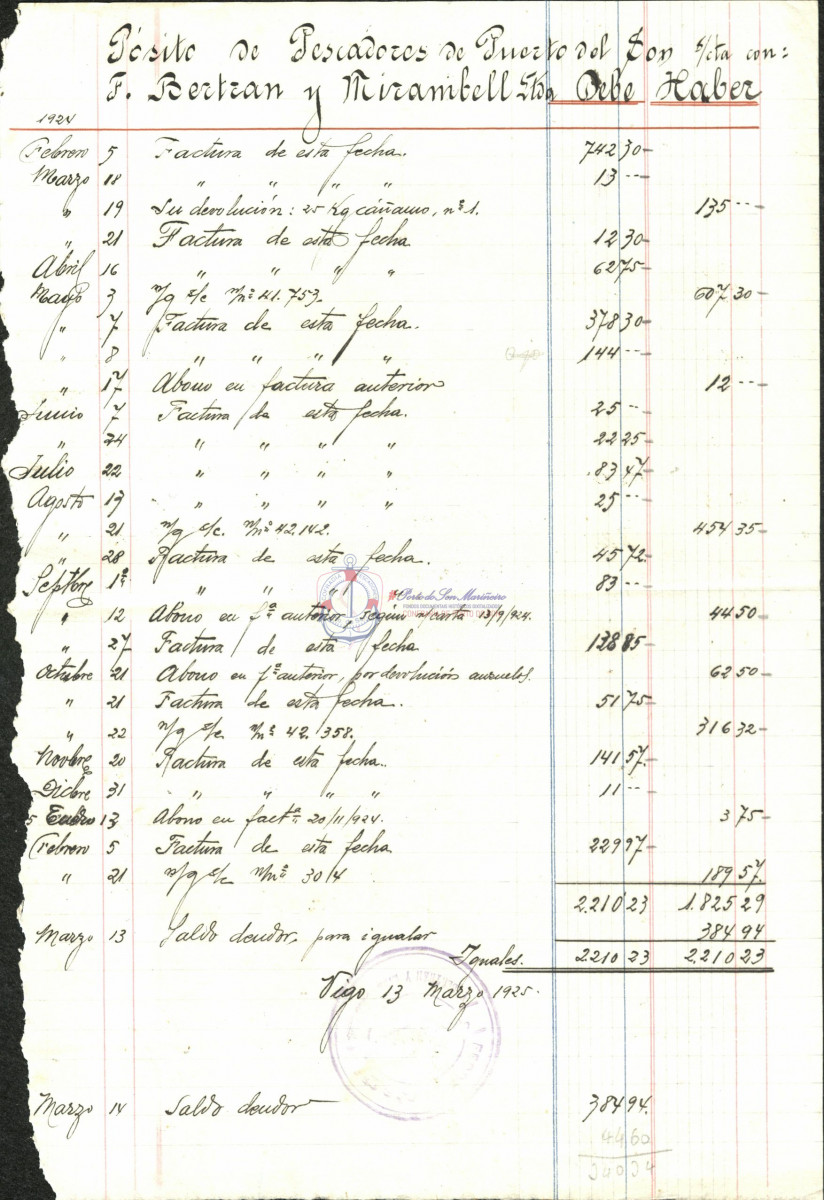 Pósito de Pescadores de Puerto del Son s/cta con:
F. Bertran y Mirambell Ltda Debe Haber
1924
Febrero 5 Factura de esta fecha. 742 30
Marzo 18 " " " " 13 --
" 19 Su devolución: 25 Kg cáñamo, nº 1. 135 --
" 21 Factura de esta fecha 12 30
Abril 16 " " " " 62 75
Mayo 3 n/g s/c n/nº 41.753. 607 30
" 7 Factura de esta fecha. 378 30
" 8 " " " " 144 --
" 17 Abono en factura anterior 12 --
Junio 7 Factura de esta fecha. 25 --
" 24 " " " " 22 25
Julio 22 " " " " 83 47
Agosto 19 " " " " 25 --
" 21 n/g s/c. n/nº 42.142. 454 35
" 28 Factura de esta fecha. 45 72
Septbre 1º " " " " 83 --
Porto do Son Mariñeiro
FONDOS DOCUMENTAIS HISTÓRICOS DIXITALIZADOS
" 12 Abono en fª anterior, según n/carta 13/9/924. 44 50
" 27 Factura de esta fecha 138 85
Octubre 21 Abono en fª anterior, por devolución anzuelos. 62 50
" 21 Factura de esta fecha. 51 75
" 22 n/g s/c. n/nº 42.358. 316 32
Novbre 20 Factura de esta fecha. 141 57
Dicbre 31 " " " " 11 --
5 Enero 13 Abono en factª 20/11/924. 3 75
Febrero 5 Factura de esta fecha 229 97
" 21 n/g s/c n/nº 304 189 57
2.210 23 1.825 29
Marzo 13 Saldo deudor, para igualar 384 94
Iguales. 2.210 23 2.210 23
Vigo 13 Marzo 1925.
Marzo 14 Saldo deudor 384 94
44 60
340 34